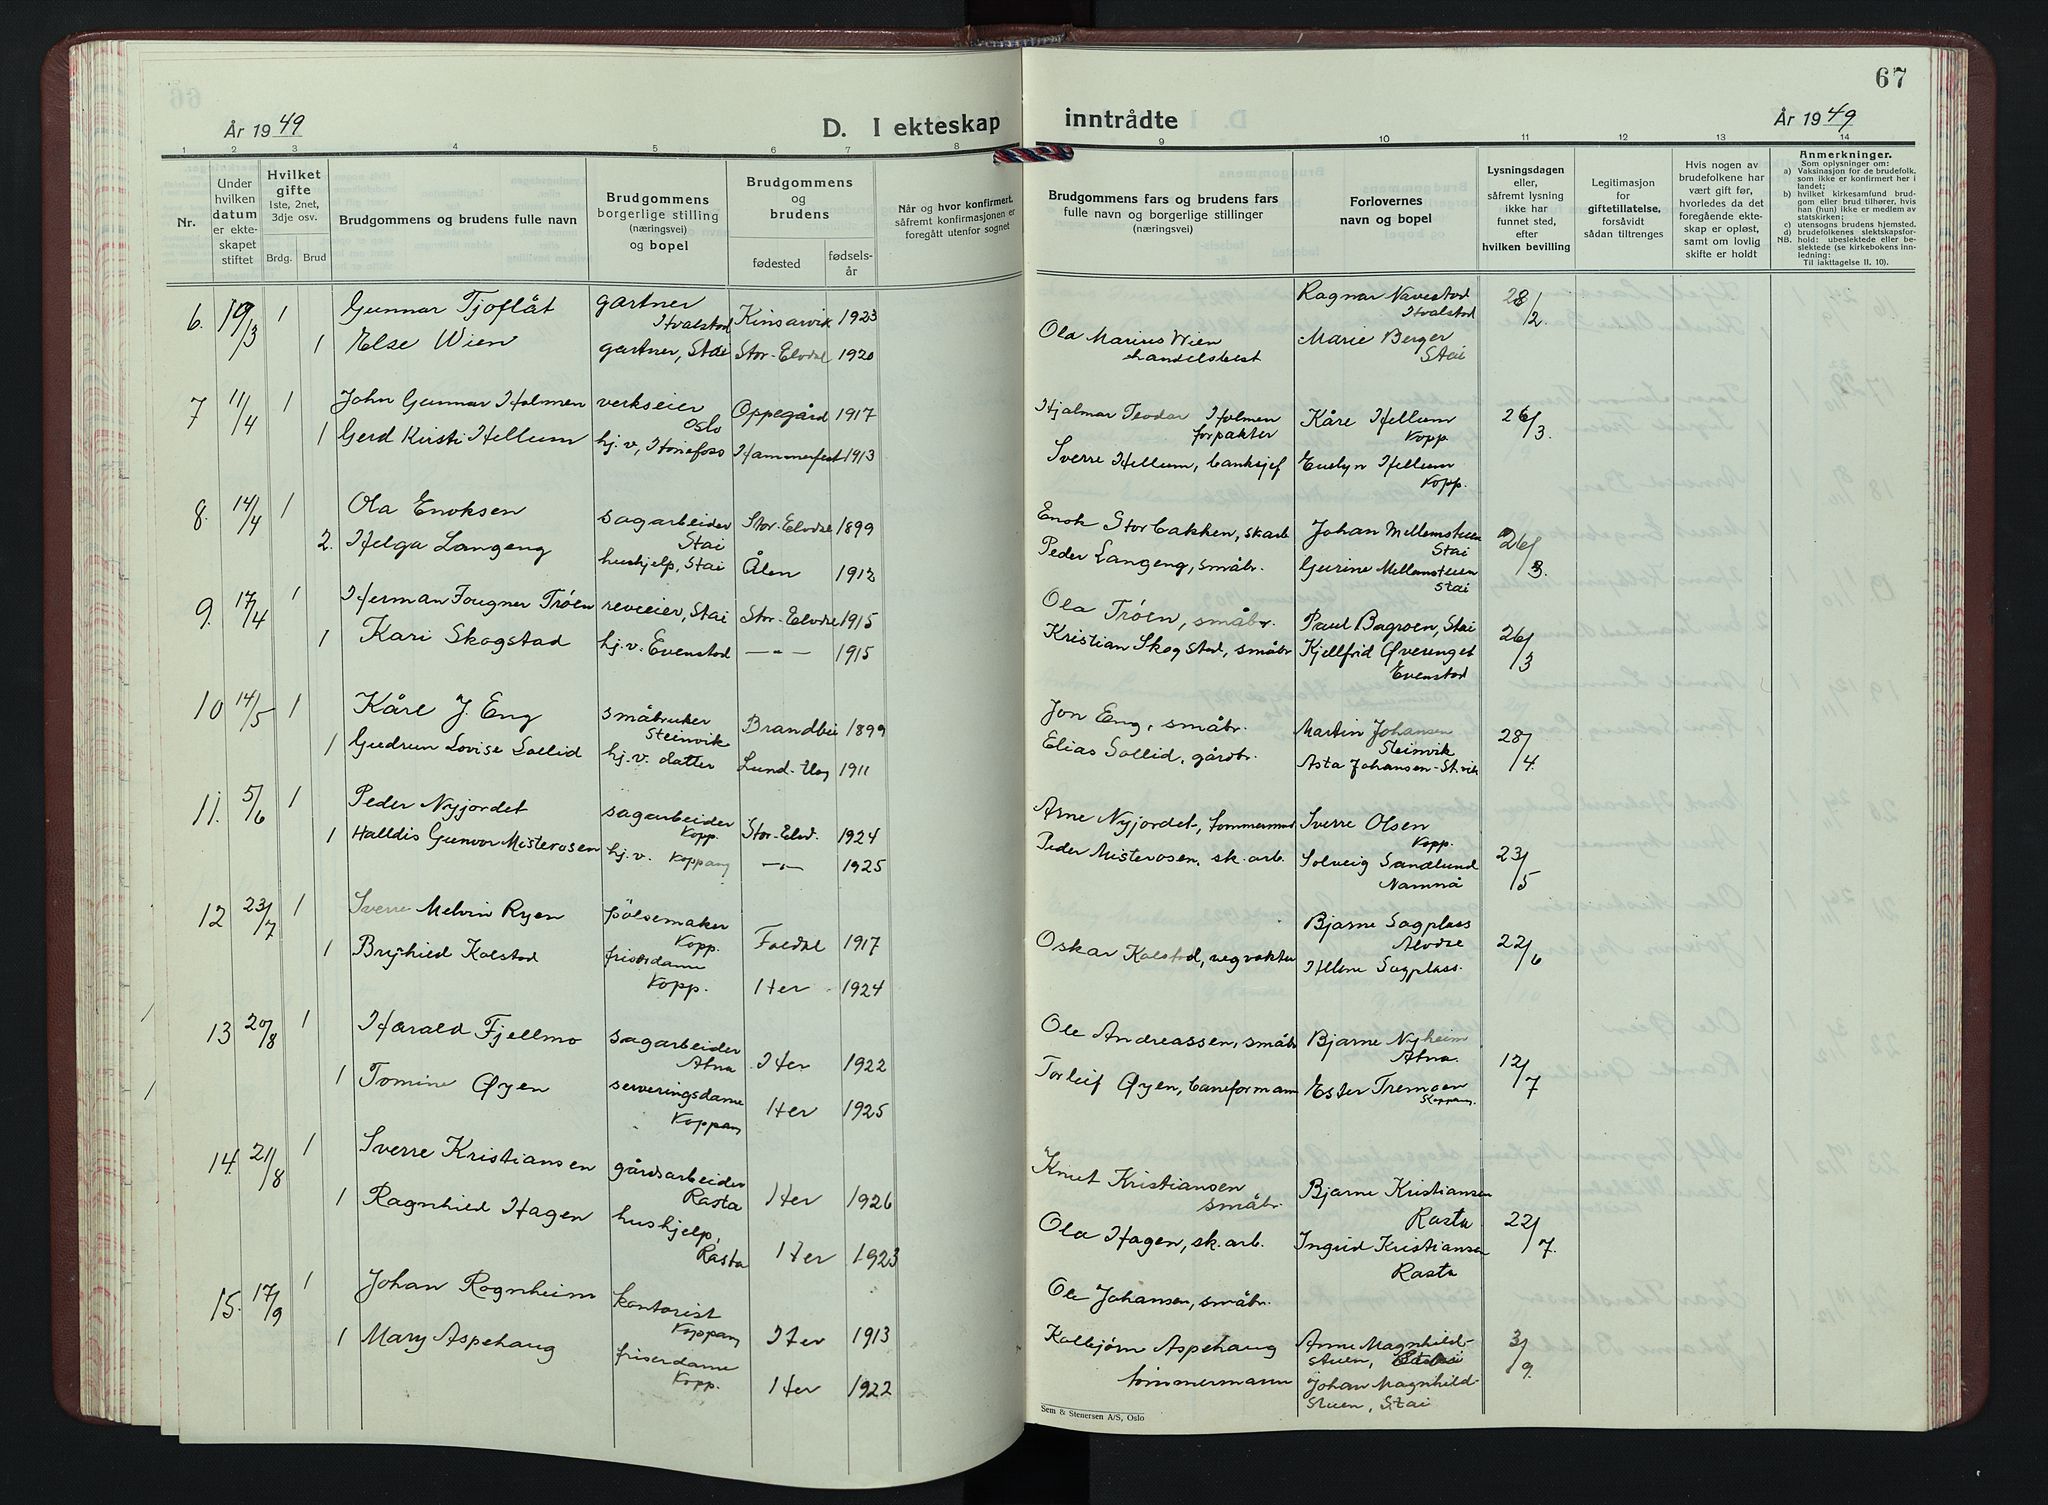 67
År 1949
D. I ekteskap inntrådte
År 1949
1 2 3 4 5 6 7 8 9 10 11 12 13 14
Nr.
Under hvilken datum er ekteskapet stiftet
Hvilket gifte 1ste, 2net, 3dje osv.
Brdg. Brud
Brudgommens og brudens fulle navn
Brudgommens borgerlige stilling (næringsvei) og bopel
Brudgommens og brudens
fødested
fødselsår
Når og hvor konfirmert, såfremt konfirmasjonen er foregått utenfor sognet
Brudgommens fars og brudens fars fulle navn og borgerlige stillinger (næringsvei)
Forlovernes navn og bopel
Lysningsdagen eller, såfremt lysning ikke har funnet sted, efter hvilken bevilling
Legitimasjon for giftetillatelse, forsåvidt sådan tiltrenges
Hvis nogen av brudefolkene har vært gift før, hvorledes da det foregående ekteskap er opløst, samt om lovlig skifte er holdt
Anmerkninger.
Som oplysninger om:
a) Vaksinasjon for de brudefolk, som ikke er konfirmert her i landet;
b) hvilket kirkesamfund brudgom eller brud tilhører, hvis han (hun) ikke er medlem av statskirken;
c) utensogns brudens hjemsted.
d) brudefolkenes slektskapsforhold: ubeslektede eller beslektede (se kirkebokens innledning:
NB. Til iakttagelse II. 10).
6. 19/3 1 Gunnar Tjoflåt gartner Hvalstad Kinsarvik 1923 Ragnar Navestad Hvalstad 28/2
1 Else Wien gartner, Stai Stor-Elvdal 1920 Ola Marius Wien handelsbest Marie Berger Stai
7 11/4 1 John Gunnar Holmen verkseier Oslo Oppegård 1917 Hjalmar Teodor Holmen forpakter Kåre Hellum Kopp. 26/3.
1 Gerd Kirsti Hellum hj.v, Hønefoss Hammerfest 1913 Sverre Hellum, banksjef Evelyn Hellum Kopp.
8. 14/4 1 Ola Enoksen sagarbeider Stai Stor-Elvdal 1899 Enok Storbakken, skarb Johan Mellemstuen Stai 26/3.
2. Helga Langeng hushjelp, Stai Ålen 1912 Peder Langeng, småbr. Gurine Mellemstuen Stai
9. 17/4 1 Herman Fougner Trøen reveeier, Stai Stor-Elvdal 1915 Ola Trøen, småbr. Paul Bagroen, Stai 26/3
1 Kari Skogstad hj.v. Evenstad —"— 1915 Kristian Skogstad, småbr Kjellfrid Øverenget Evenstad
10 14/5 1 Kåre J. Eng småbruker Steinvik Brandbu 1899 Jon Eng, småbr. Martin Johansen Steinvik 28/4.
1 Gudrun Lovise Sollid hj.v. datter 1911 Elias Sollid, gårdbr. Asta Johansen-St.vik
11. 5/6 1 Peder Nyjordet sagarbeider Kopp. Stor-Elvd. 1924 Arne Nyjordet, tømmermand Sverre Olsen Kopp. 23/5
1 Halldis Gunvor Misterosen hj.v. Koppang —"— 1925 Peder Misterosen, sk.arb. Solveig Sandlund Namnå
12 23/7 1 Sverre Melvin Ryen pølsemaker Kopp. Foldal 1917 Bjarne Sagplass Alvdal 22/6
1 Brynhild Kolstad friserdame Kopp. Her 1924 Oskar Kolstad, vegvokter Helene Sagplass.
13 20/8 1 Harald Fjellmo sagarbeider Atna Her 1922 Ole Andreassen, småbr Bjarne Nyheim Atna. 12/7
1 Tomine Øyen serveringsdame Koppang Her 1925 Torleif Øyen, baneformann Ester Tremoen Koppang.
14. 21/8 1 Sverre Kristiansen gårdsarbeider Rasta Her 1926 Knut Kristiansen småbr. Bjarne Kristiansen Rasta 22/7.
1 Ragnhild Hagen hushjelp, Rasta Her 1923 Ola Hagen, sk.arb. Ingrid Kristiansen Rasta
15. 17/9 1 Johan Rognheim kontorist Koppang Her 1913 Ole Johansen, småbr. Anne Magnhildstuen, 3/9.
1 Mary Aspehaug friserdame Kopp. Her 1922 Kolbjørn Aspehaug tømmermann Johan Magnhildstuen, Stai
Sem & Stenersen A/S, Oslo